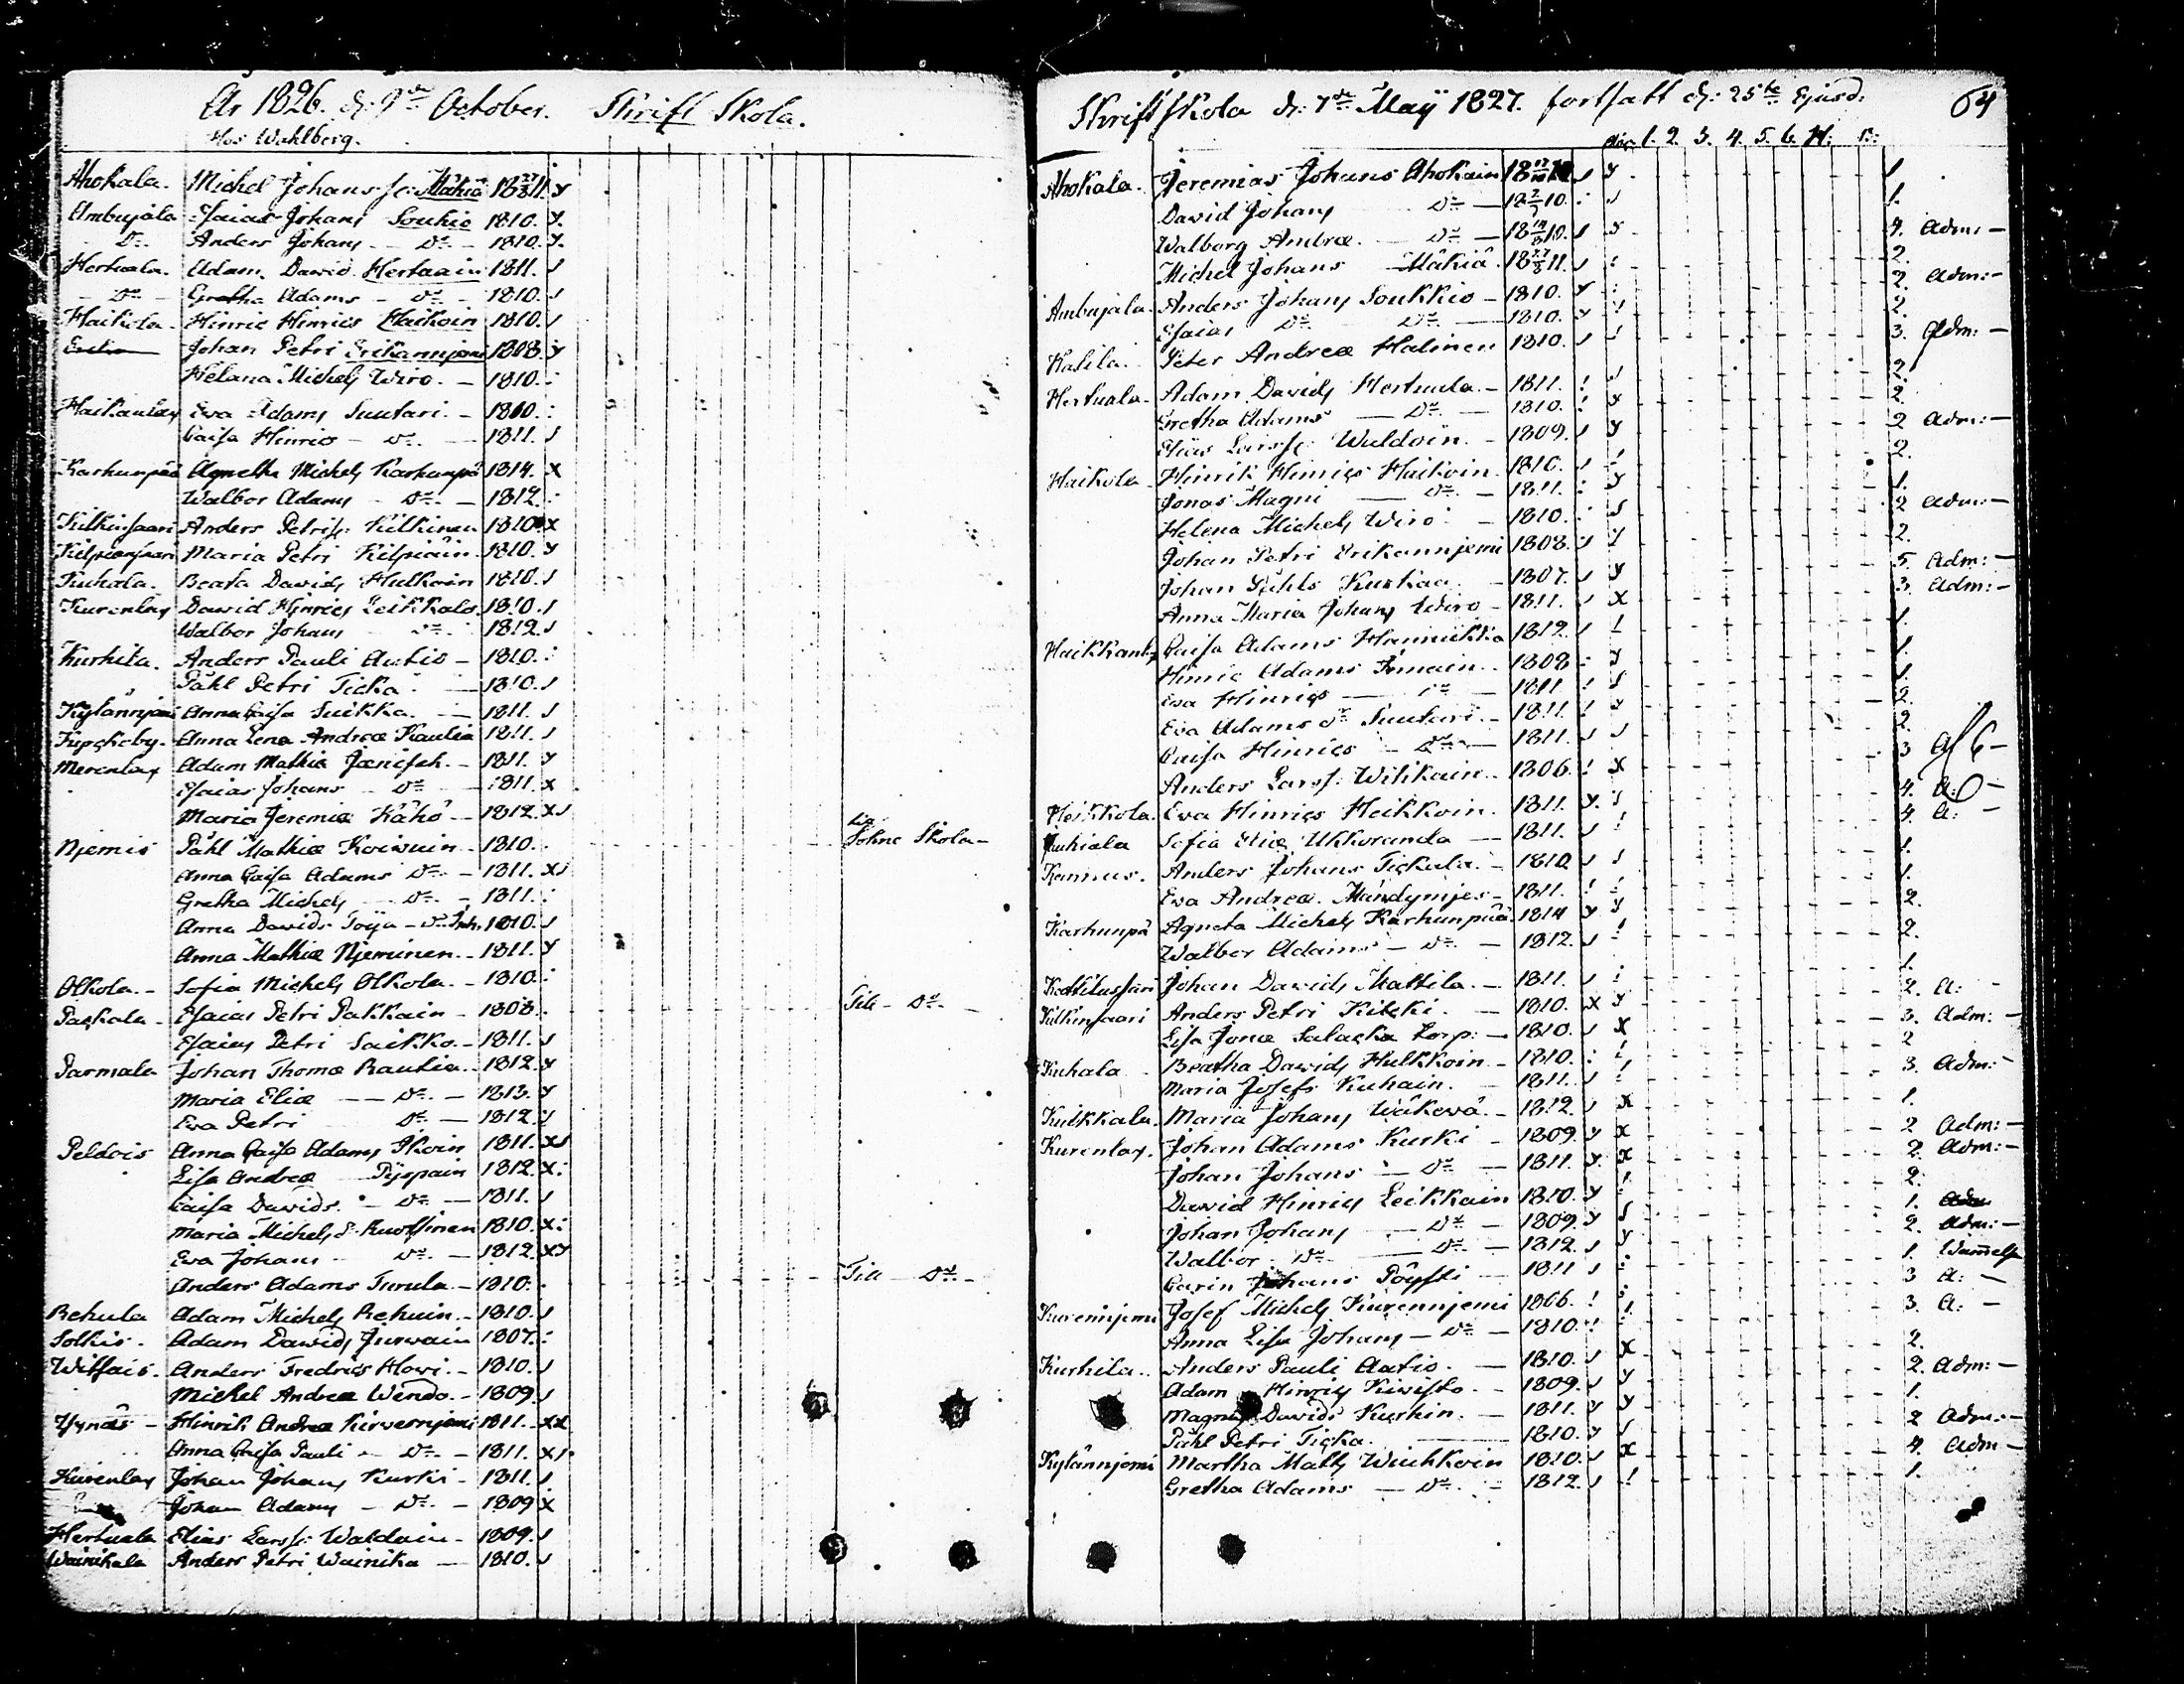 År 1826. d: 9de October. Skrift Skola.
Hos Wahlberg.
Ahokala. Michel Johans Mäkiä 18 27/8 11. y
Ambujala Esaias Johans Soukio 1810. y.
Do. Anders Johans Do. 1810. y.
Hertuala. Adam David Hertuain 1811. s
Do Gretha Adams Do 1810. s
Haikola. Hinric Hinrics Haikoin 1810. s
Johan Petri Erikannjemi 1808. y
Helena Michels Wiro. 1810.
Haikanlax Eva Adams Suutari. 1810.
Caisa Hinrics Do. 1811. s
Karhunpää Agnetha Michels Karhunpä 1814. x
Walbor Adams Do. 1812.
Kilkinsaari Anders Petriss. Kilkinen 1810 x
Kilpiensaari Maria Petri Kilpiäin 1810. y
Kuhala. Beata Davids Hulkoin 1810. s
Kurenlax David Hinrics Leikkala. 1810. s
Walbor Johans Do. 1812. s
Kurhila. Anders Pauli Autio 1810.
Påhl Petri Ticka 1810. s
Kylännjemi Anna Caisa Suikka. 1811. s
Anna Lena Andreæ Rautia 1811. s
Merenlax Adam Mathiæ Jæniseh. 1811. y
Esaias Johans Do 1811. x
Maria Jeremiæ Kähö 1812. xs
Njemis Påhl Mathiæ Koiwuin 1810. Söhne Skola
Anna Caisa Adams Do 1811. xs
Gretha Michels Do. 1811.
Anna Davids Toija 1810. s
Anna Mathiæ Njeminen. 1811. y
Olkola. Sofia Michels Olkola. 1810.
Packala Esaias Petri Pakkain 1808. Till Do.
Esaias Petri Saikko. 1811. s
Parmala Johan Thomæ Rautia. 1812. y
Maria Eliæ Do. 1813. y
Eva Petri Do. 1812. s
Peldois Anna Caisa Adams Ikoin 1811. xs
Lisa Andreæ Pyppain 1812. x
Caisa Davids. Do 1811. s
Maria Michels Ruottinen 1810. x
Eva Johans Do. 1812. xy
Anders Adams Turula 1810. Till Do.
Rehula Adam Michels Rehuin. 1810. s
Solkis. Adam Davids Jurvain 1807.
Wilsais. Anders Fredrics Hovi. 1810. s
Michel Andreæ Wendo. 1809. s
Yynäs Hinrik Andreæ Kirvesnjemi 1811. xx
Anna Caisa Pauli Do. 1811. x
Kurenlax Johan Johans Kurki 1811. s
Johan Adams Do. 1809 x
Hertuala Elias Larss: Waldain 1809. s
Wainikala Anders Petri Wainika 1810. s
Skrift Skola d: 7de Maÿ 1827. fortsatt d: 25te Ejusd: 64
1. 2. 3. 4. 5. 6. H:
Ahokala. Jeremias Johans Ahokain s y 1.
David Johans Do 1810. s 1.
Walborg Andreæ Do 1810. s y 4. Adm:
Michel Johans Mäkiä. 18 27/8 11. s 2.
Ambujala. Anders Johans Soukkio 1810. y 2. Adm:
Esaias Do Do. 1810. y 2.
Halila. Peter Andreæ Halinen 1810. s s 3. Adm:
Hertuala. Adam Davids Hertuala. 1811. 2.
Gretha Adams Do. 1810. y 2.
Elias Larss: Waldoin. 1809. s y 2 Adm:
Haikola Hinrik Hinrics Haikoin. 1810. s 2.
Jonas Magni Do. 1811. y 1.
Helena Michels Wiro 1810. s 2 Adm:
Johan Petri Erikannjemi 1808. s y 2.
Johan Påhls Kurkaa. 1807. s y 5. Adm:
Anna Maria Johans Wiro 1811. s x 3. Adm:
Haikkanlx Caisa Adams Hannukkia 1812. s 1.
Hinric Adams 1808 y 1.
Eva Hinrics 1811 s 1.
Eva Adams Suutari. 1811. y 2.
Caisa Hinrics Do. 1811. s s 2.
Anders Larss: Wilikain. 1806. x 3
Heikkola. Eva Hinrics Heikkoin. 1811. y. s 4. A:
Sofia Eliæ Ukkoranda 1811. s 4. A:
Kannus. Anders Johans Tickula. 1810 s s 1.
Eva Andreæ. 1811. 1.
Karhunpä Agneta Michels Karhunpää. 1814 y y 2.
Walbor Adams Do. 1812. s 2.
Johan Davids Mattila. 1811. s 1.
Kilkinsaari Anders Petri Kilcki. 1810. x y 2. A:
Lisa Jonæ Salacka Torp: 1810. s x 3. Adm:
Kuhala Beatha Davids Hulkkoin 1810. 2
Maria Josefs Kuhain. 1811. s 3 Adm:
Kuikkala. Maria Johans Wäkevä. 1812. s x 1.
Kurenlax. Johan Adams Kurki 1809. y x 2 Adm:
Johan Johans Do 1811. y. x 2. Adm:
David Hinrics Leikkain 1810. y 2.
Johan Johans Do 1809. y s 1.
Walbor Do Do 1812. s y 2. Adm:
Carin Johans Pöysti 1811 s 1.
Kurennjemi Josef Michels Kurennjemi 1806. 3 A:
Anna Lisa Johans Do 1810. 3. A:
Kurhila. Anders Pauli Autio. 1810. s x 2.
Adam Hinrics Kiwisto. 1809. s y 2. Adm:
Magnus Davids Kurhin. 1811. y y 1.
Påhl Petri Ticka. 1810. y s 2 Adm:
Kylännjemi Martha Matts Wiuhkoin 1810. s x 4. Adm
Gretha Adams Do. 1812. s 1.